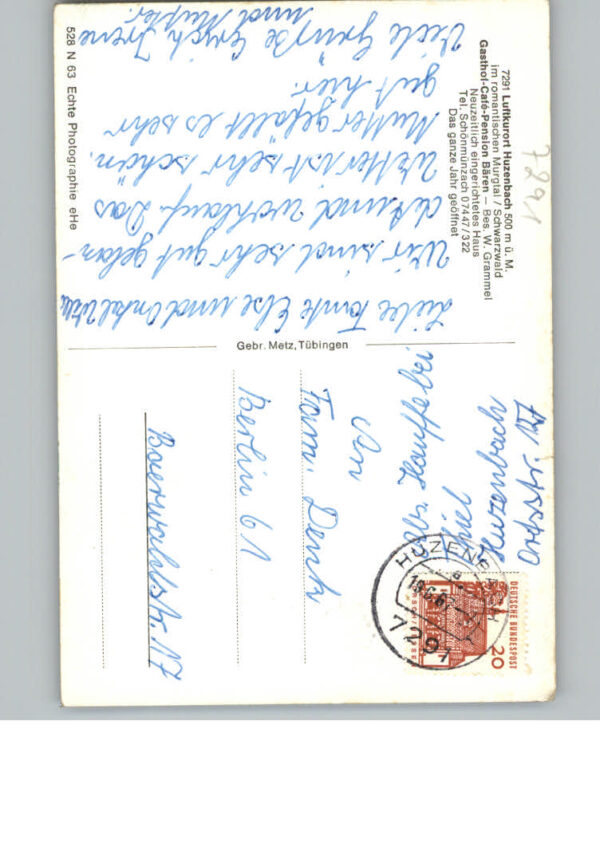 7291 Luftkurort Huzenbach 500 m ü. M.
im romantischen Murgtal / Schwarzwald
Gasthof-Café-Pension Bären — Bes. W. Grammel
Neuzeitlich eingerichtetes Haus
Tel. Schönmünzach 07447/322
Das ganze Jahr geöffnet
7291
Liebe Tante Else und Onkel Willi
Wir sind sehr gut gelan-
det und wohlauf. Das
Wetter ist sehr schön.
Mutter gefällt es sehr
gut hier.
Viele Grüße Erich Irene
und Mutter.
528 N 63 Echte Photographie eHe
Gebr. Metz, Tübingen
Huzenbach
An
Fam.
Berlin 61
Baerwaldstr. 17
HUZENBACH
7291
DEUTSCHE BUNDESPOST
20